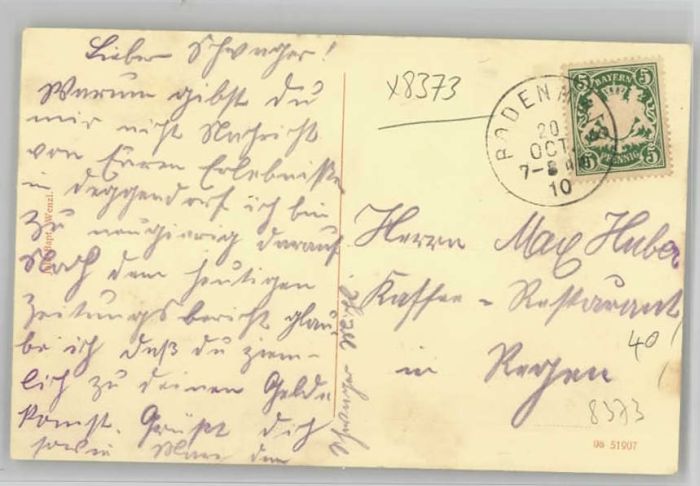 Lieber Schwager!
Warum gibst du
mir nicht Nachricht
von Euren Erlebnissen
in Deggendorf ich bin
zu neugierig darauf.
Nach dem heutigen
Zeitungsbericht glau-
be ich daß du ziem-
lich zu deinem Gelde
komst. Grüßt dich
sowie Marie dein
Schwager
x8373
RODENA
20
OCT
7-8
10
BAYERN
5 5
5 PFENNIG 5
Herrn Max Huber
Kaffee - Restaurant
in Regen
40
8373
06 51907
Wenzl.